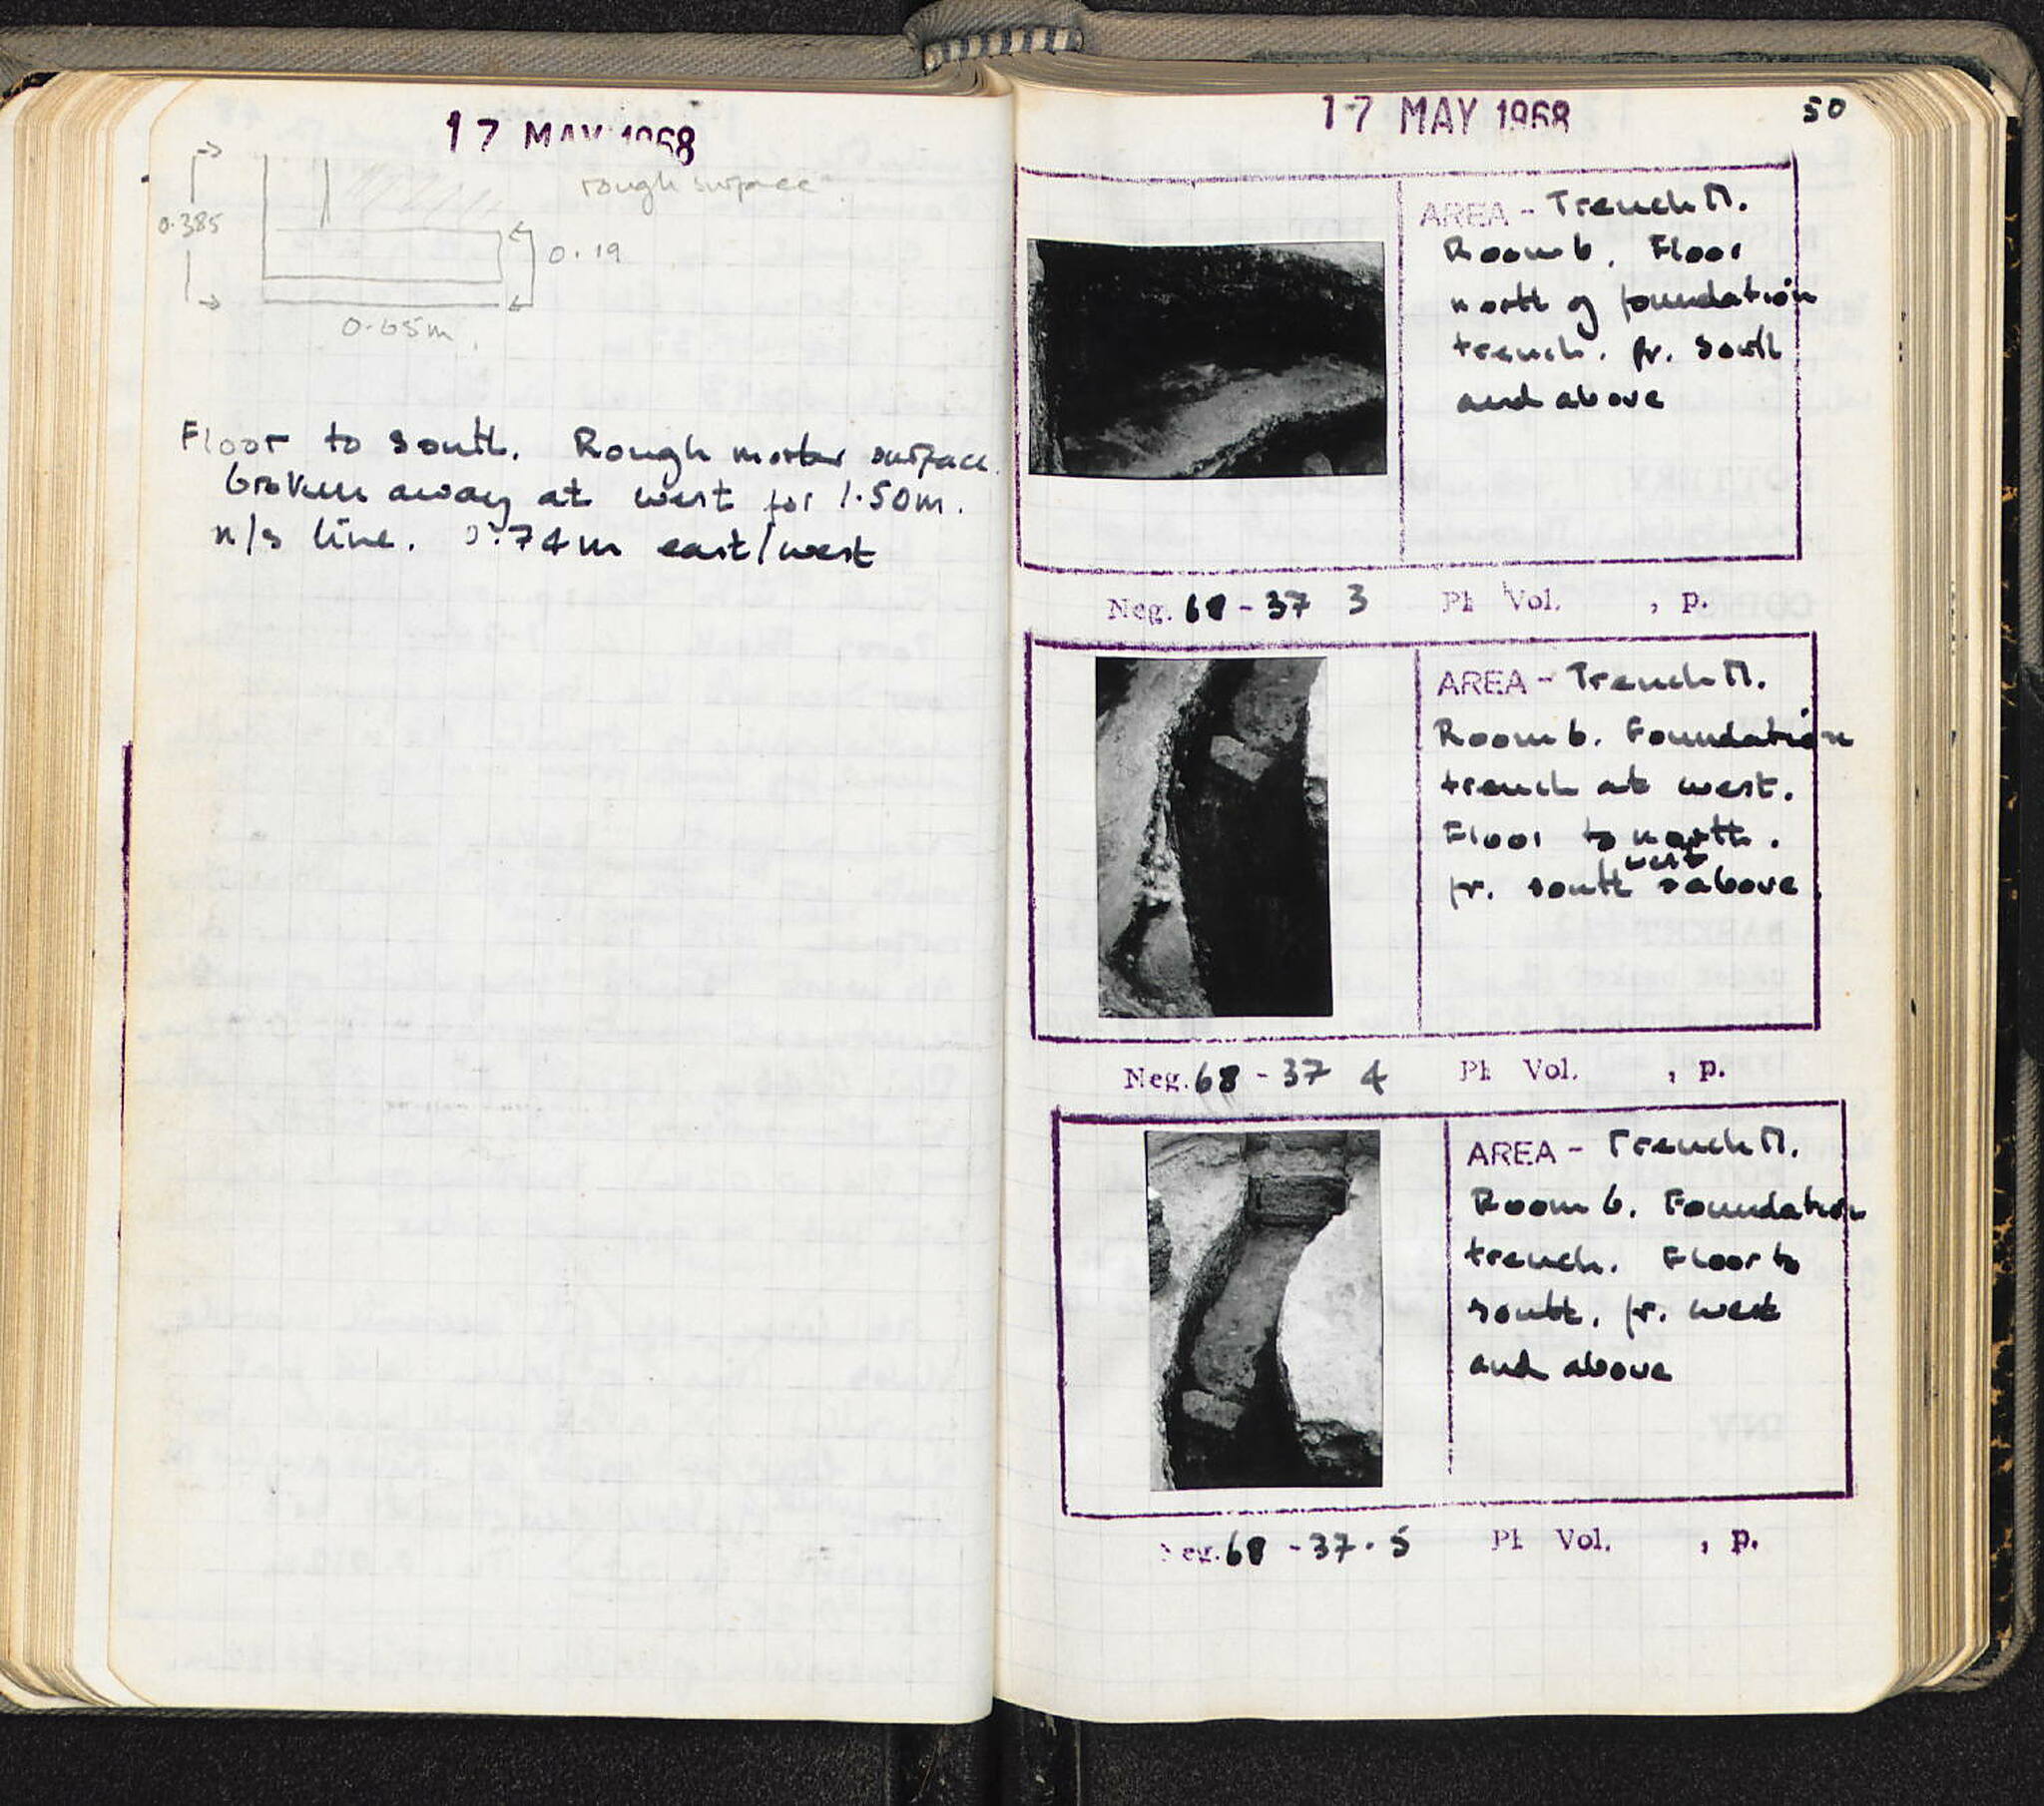 17 MAY 1968
rough surface
0.385
0.19
0.65m.
Floor to south. Rough mortar surface.
broken away at west for 1.50m.
n/s line. 0.74m east/west
17 MAY 1968
50
AREA - Trench M.
Room 6. Floor
north of foundation
trench. fr. south
and above
Neg. 68 - 37 3 Ph Vol. , p.
AREA - Trench M.
Room 6. Foundation
trench at west.
Floor to north.
west
fr. south above
Neg. 68 - 37 4 Ph Vol. , p.
AREA - Trench M.
Room 6. Foundation
trench. Floor to
south. fr. west
and above
Neg. 68 - 37 . 5 Ph Vol. , p.